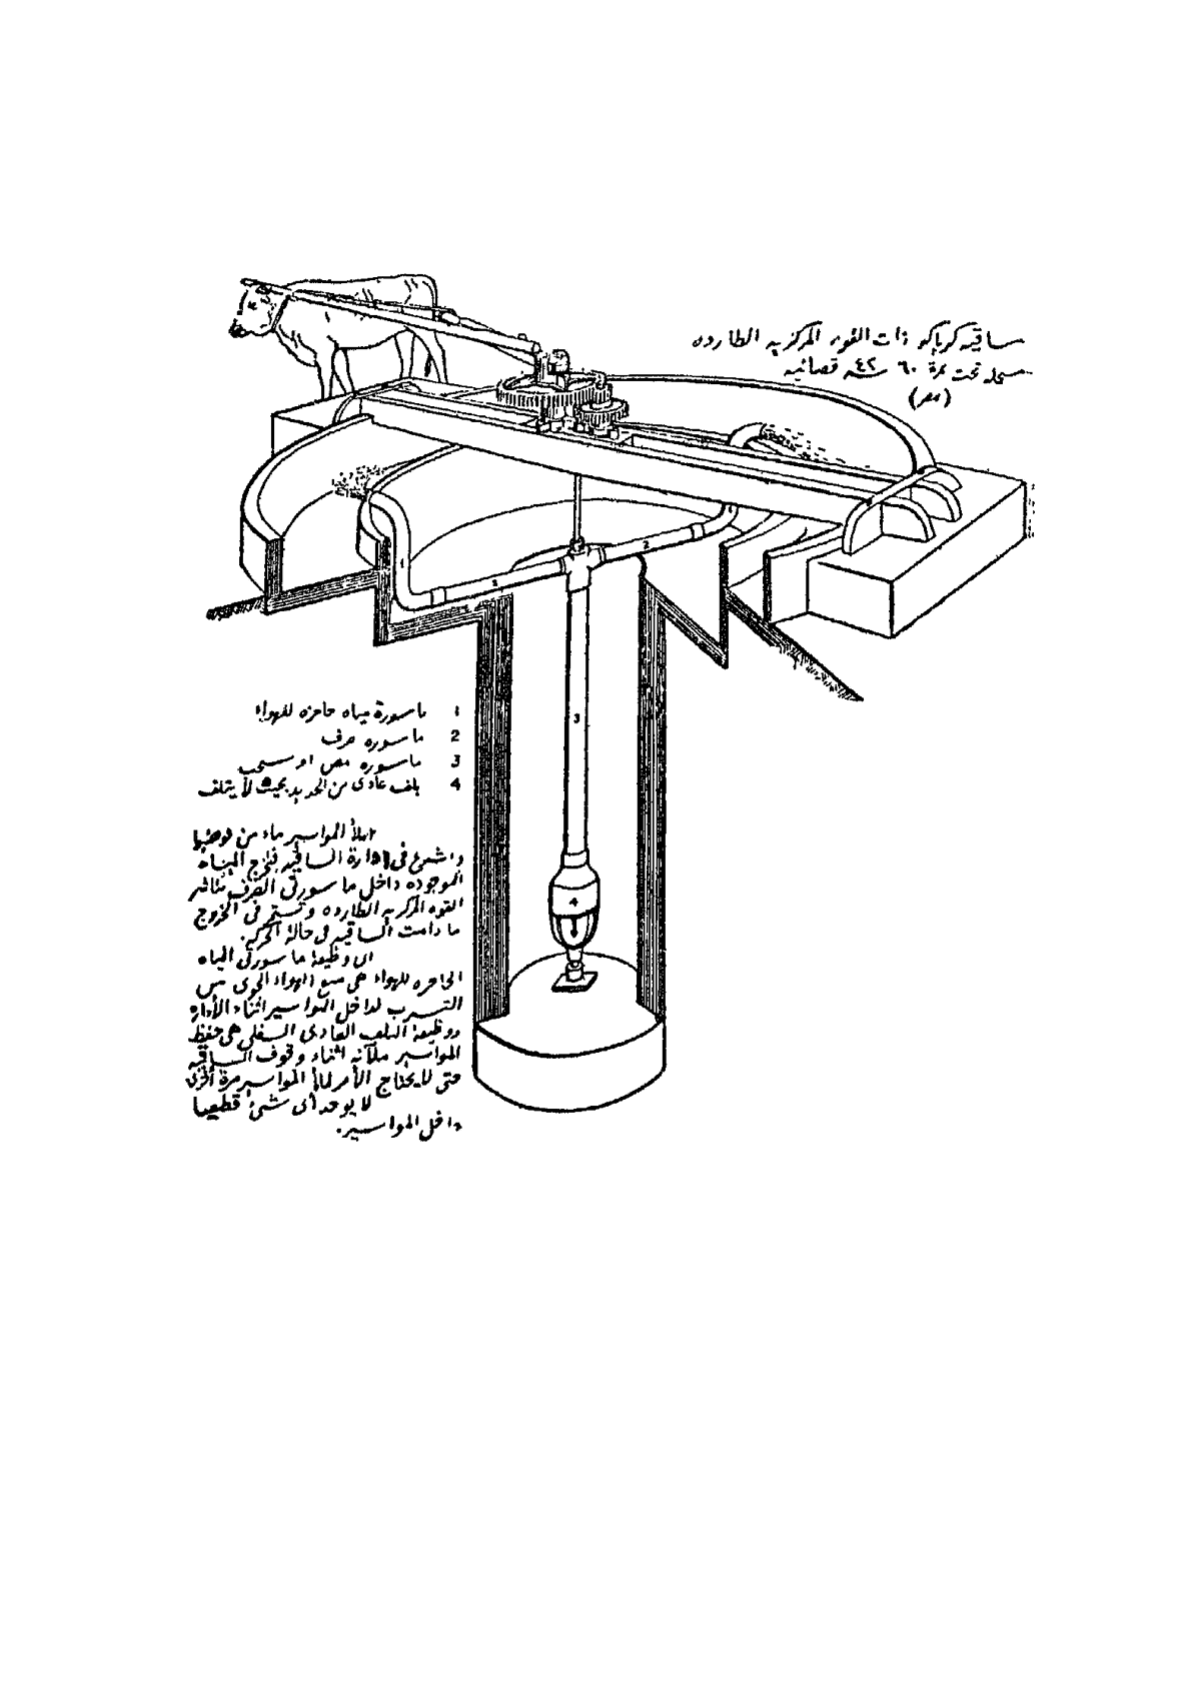 ساقيه كرياكو ذات القوه المركزيه الطارده
مسجله تحت نمرة ٦٠ سنه ٤٢ قضائيه
(مصر)
1 ماسورة مياه حاجزه للهواء
2 ماسوره صرف
3 ماسوره مص او سحب
4 بلف عادى من الحديد بحيث لا يتلف
املأ المواسير ماء من فوهتها
واشرع فى إدارة الساقيه فتخرج المياه
الموجوده داخل ماسورتى الصرف بتأثير
القوه المركزيه الطارده وتستمر فى الخروج
ما دامت الساقيه فى حالة الحركه.
ان وظيفة ماسورتى المياه
الحاجزه للهواء هى منع الهواء الجوى من
التسرب لداخل المواسير اثناء الأداره
ووظيفة البلف العادى السفلى هى حفظ
المواسير ملآنه اثناء وقوف الساقيه
حتى لا يحتاج الأمر لملأ المواسير مرة أخرى
لا يوجد أى شئ قطعيا
داخل المواسير.